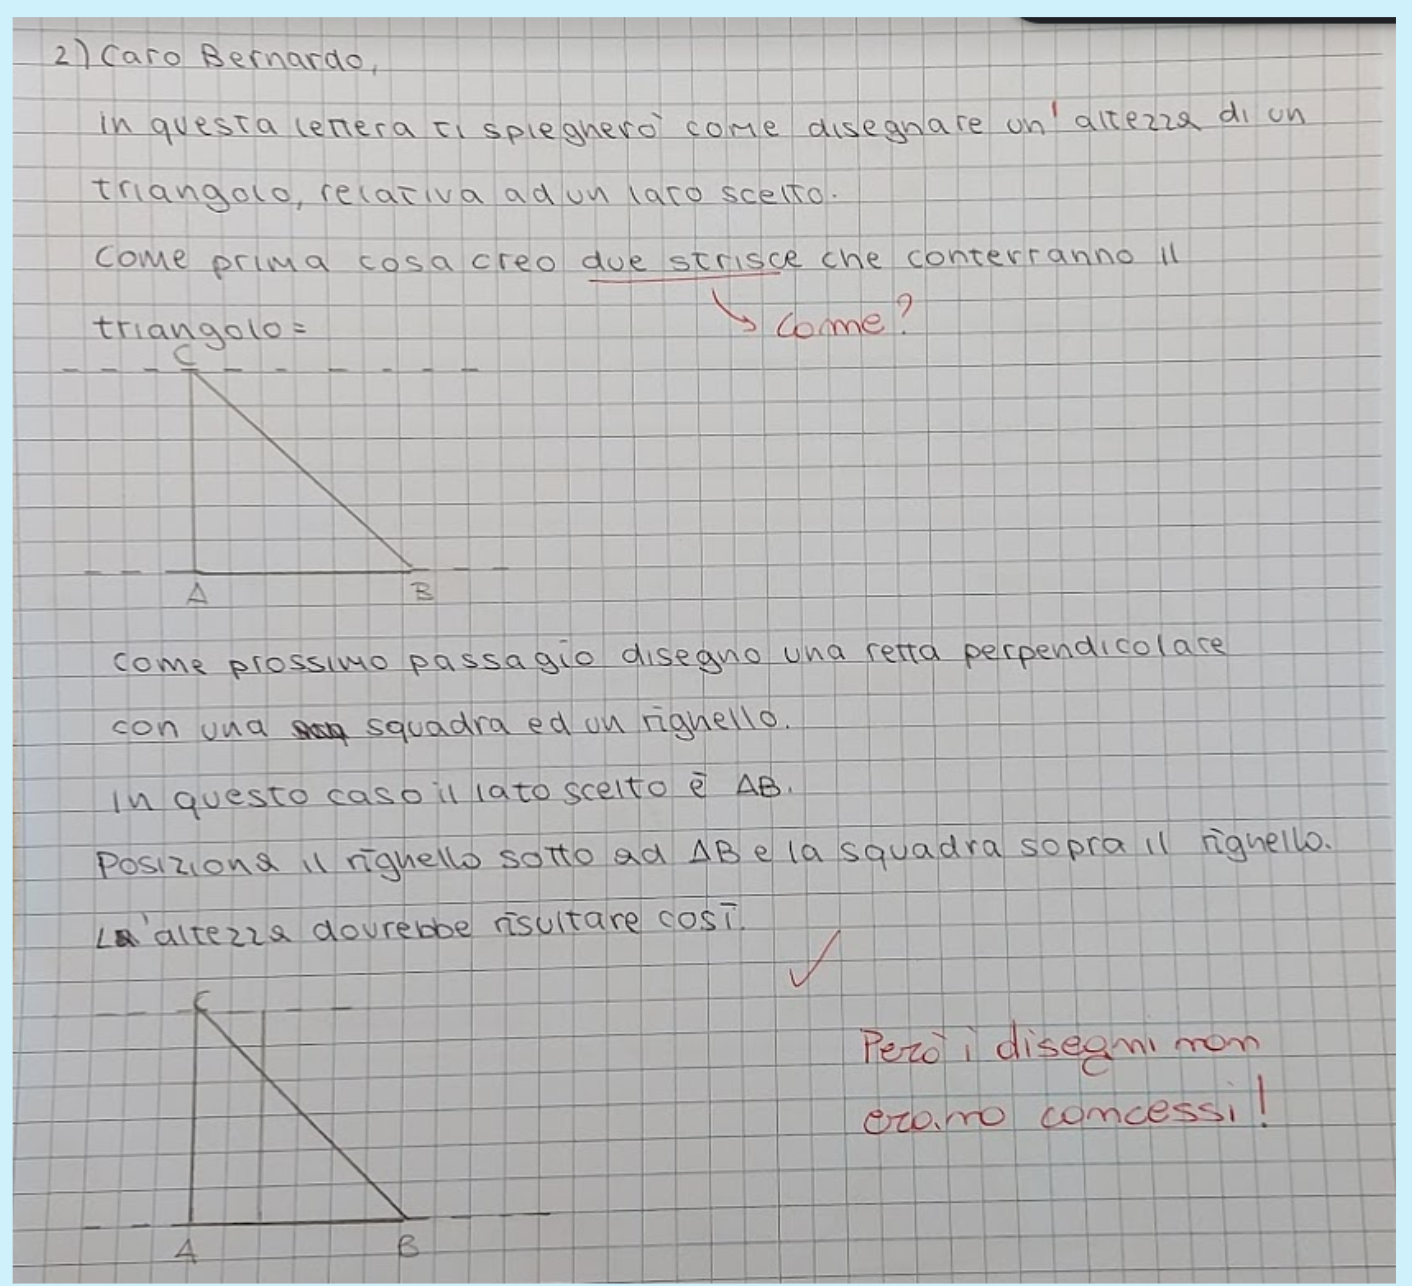 2) Caro Bernardo,
in questa lettera ti spiegherò come disegnare un'altezza di un
triangolo, relativa ad un lato scelto.
Come prima cosa creo due strisce che conterranno il
→ Come?
triangolo=
C
A B
Come prossimo passagio disegno una retta perpendicolare
con una squadra ed un righello.
In questo caso il lato scelto è AB.
Posiziona il righello sotto ad AB e la squadra sopra il righello.
L'altezza dovrebbe risultare così.
✓
C
Però i disegni non
erano concessi!
A B